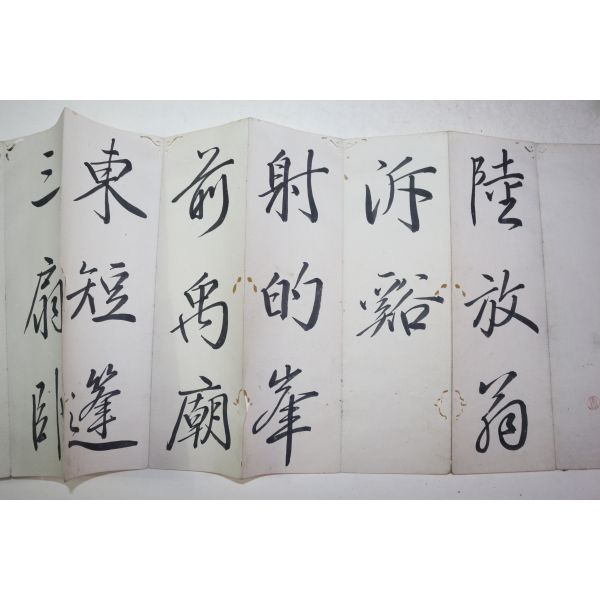 陸放翁
泝谿
射的峯
前禹廟
東短篷
三扇臥